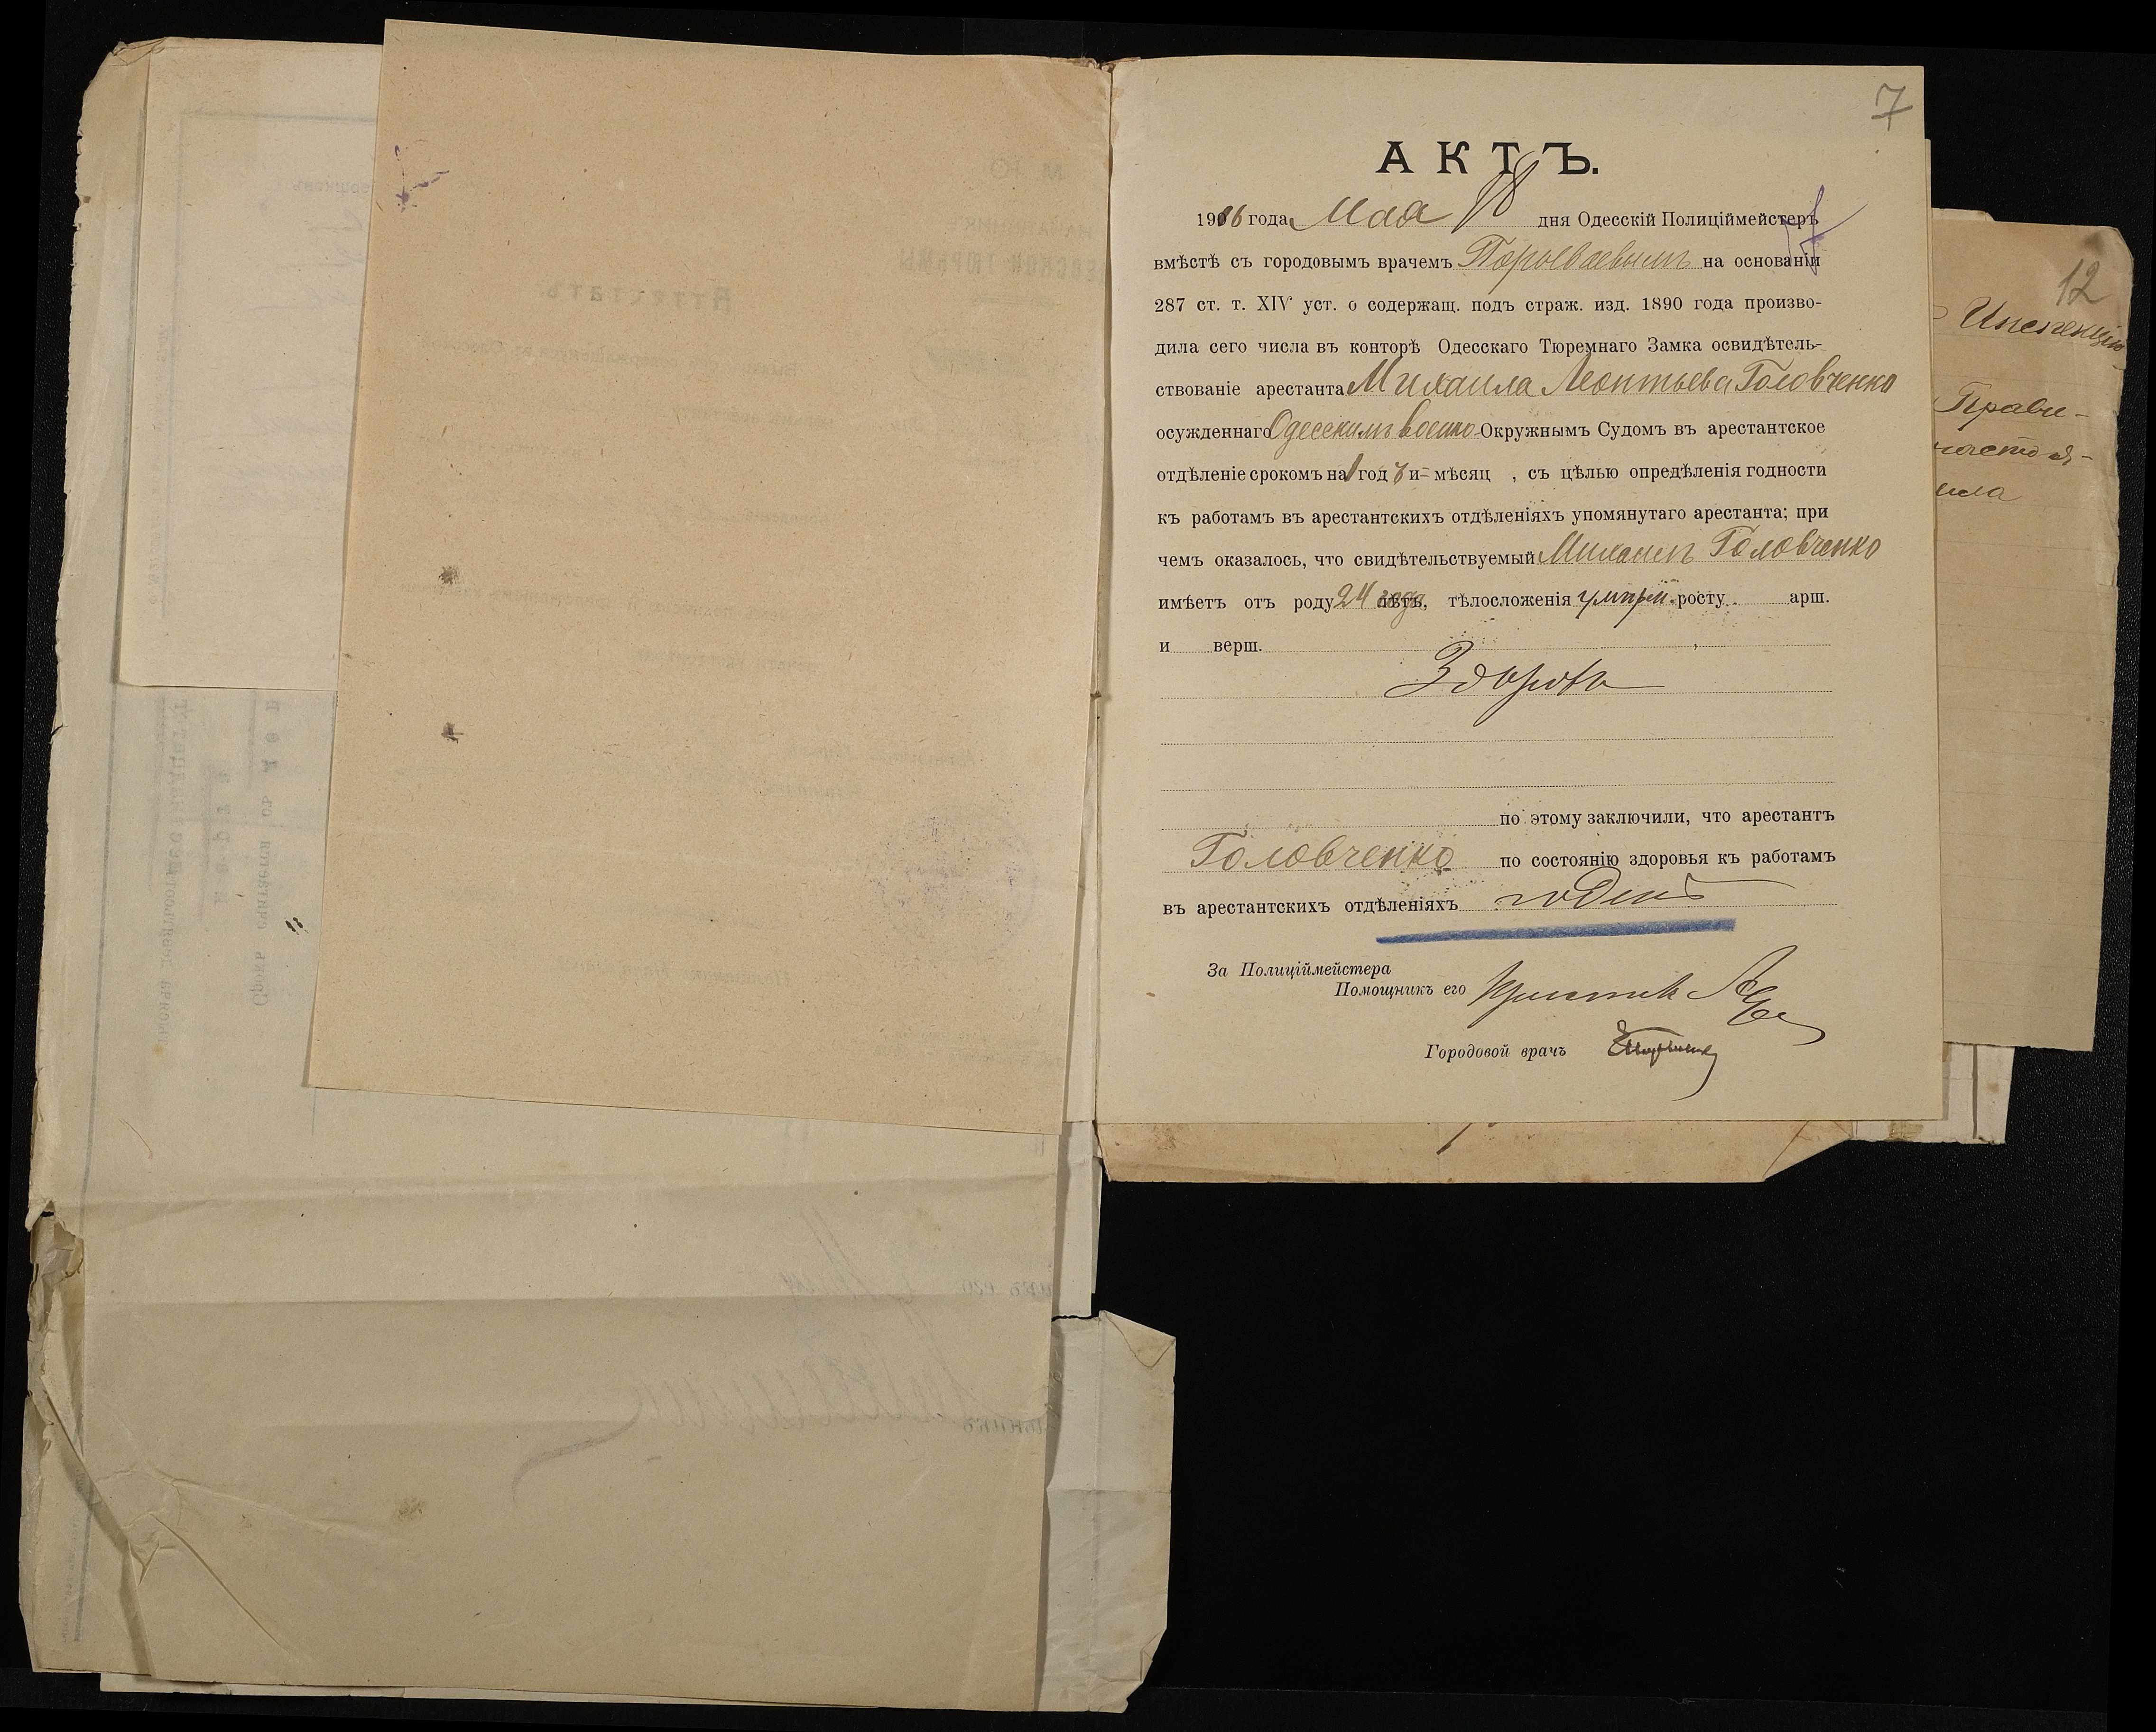 7
АКТЪ.
1906 года Мая 18 дня Одесскій Полиціймейстеръ
вмѣстѣ съ городовымъ врачемъ на основаніи
287 ст. т. XIV уст. о содержащ. подъ страж. изд. 1890 года произво-
дила сего числа въ конторѣ Одесскаго Тюремнаго Замка освидѣтель-
ствованіе арестанта Михаила Леонтьева Головченко
осужденнаго Одесскимъ Военно-Окружнымъ Судомъ въ арестантское
отдѣленіе срокомъ на 1 год ъ и = мѣсяц , съ цѣлью опредѣленія годности
къ работамъ въ арестантскихъ отдѣленіяхъ упомянутаго арестанта; при
чемъ оказалось, что свидѣтельствуемый Михаилъ Головченко
имѣетъ отъ роду 24 года лѣтъ, тѣлосложенія росту арш.
и верш.
Здоровъ
по этому заключили, что арестантъ
Головченко по состоянію здоровья къ работамъ
въ арестантскихъ отдѣленіяхъ годенъ
За Полиціймейстера
Помощникъ его
Городовой врачъ
12
Инспекцію
Прави-
настоя-